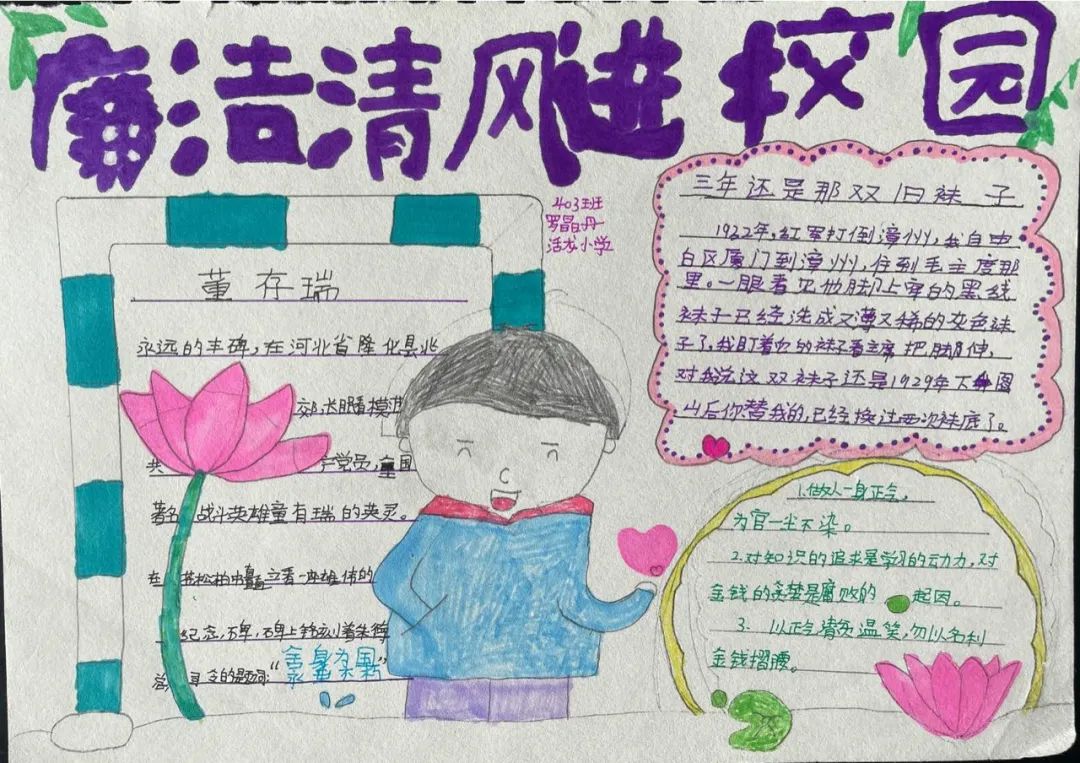 廉洁清风进校园
403班
罗晶丹
活龙小学
董存瑞
永远的丰碑，在河北省隆化县北
郊，长眠着模范
共 产党员，全国
著名 战斗英雄董存瑞的英灵。
在 苍松柏中矗立着一座雄伟的
纪念碑，碑上镌刻着朱德
总 司令的题词："舍身为国
永垂不朽"
三年还是那双旧袜子
1932年，红军打倒漳州，我自由
白区厦门到漳州，住到毛主席那
里。一眼看见他脚上穿的黑线
袜子已经洗成又薄又稀的灰色袜
子了，我盯着他的袜子看主席把脚伸，
对我说这双袜子还是1929年下
山后你替我的，已经换过两次袜底了。
1.做人一身正气，
为官一尘不染。
2.对知识的追求是学习的动力，对
金钱的贪婪是腐败的 起因。
3. 以正气清贫温笑，勿以名利
金钱摺腰。